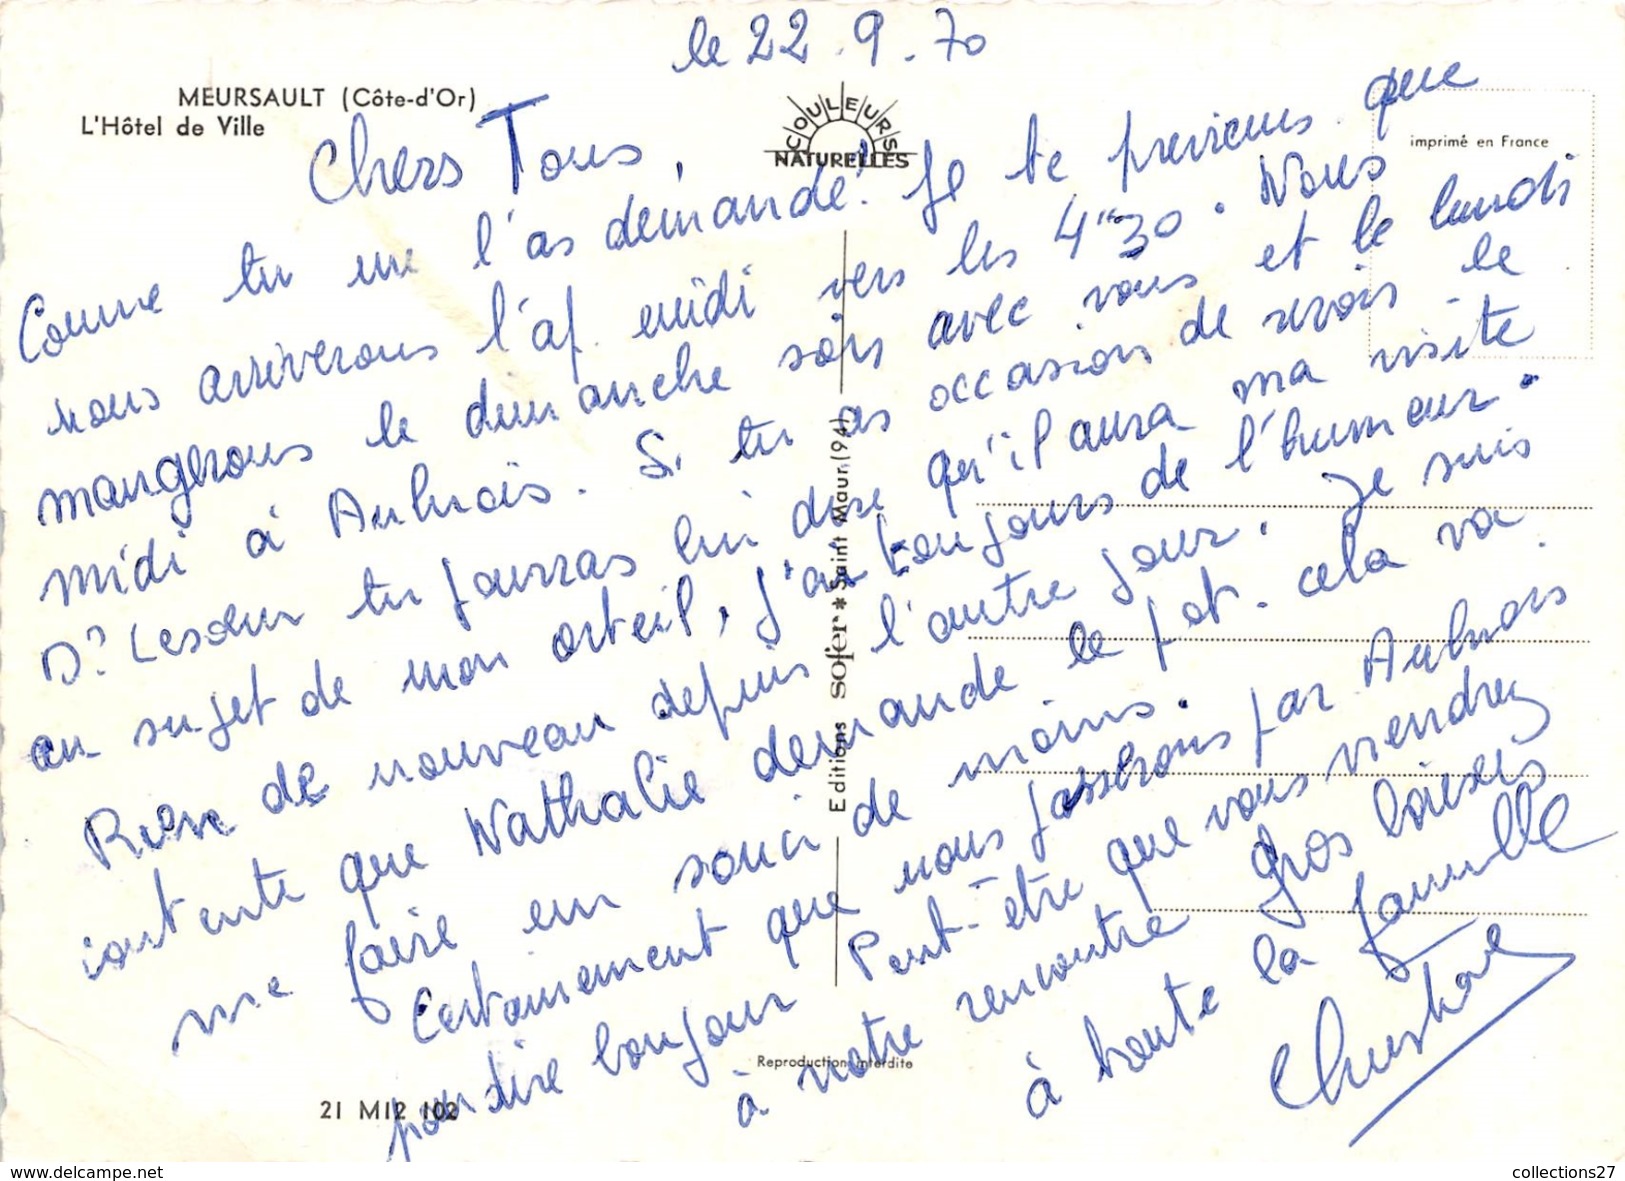 le 22.9.70
MEURSAULT (Côte-d'Or)
L'Hôtel de Ville
COULEURS
NATURELLES
imprimé en France
Chers Tous,
Comme tu me l'as demandé! Je te previens que
nous arriverons l'af. midi vers les 4"30. Nous
mangerons le dimanche soir avec vous et le lundi
midi à Aulnois. Si tu as occasion de revoir le
Dr Lesœur tu pourras lui dire qu'il aura ma visite
au sujet de mon orteil, j'ai toujours de l'humeur.
Rien de nouveau depuis l'autre jour. Je suis
contente que Nathalie demande le pot. cela va
me faire un souci de moins.
Certainement que nous passerons par Aulnois
pour dire bonjour Peut-être que vous viendrez
à notre rencontre Gros baisers
à toute la famille
Christiane
Editions sofer * Saint Maur (94)
Reproduction interdite
21 M12 102
collections27